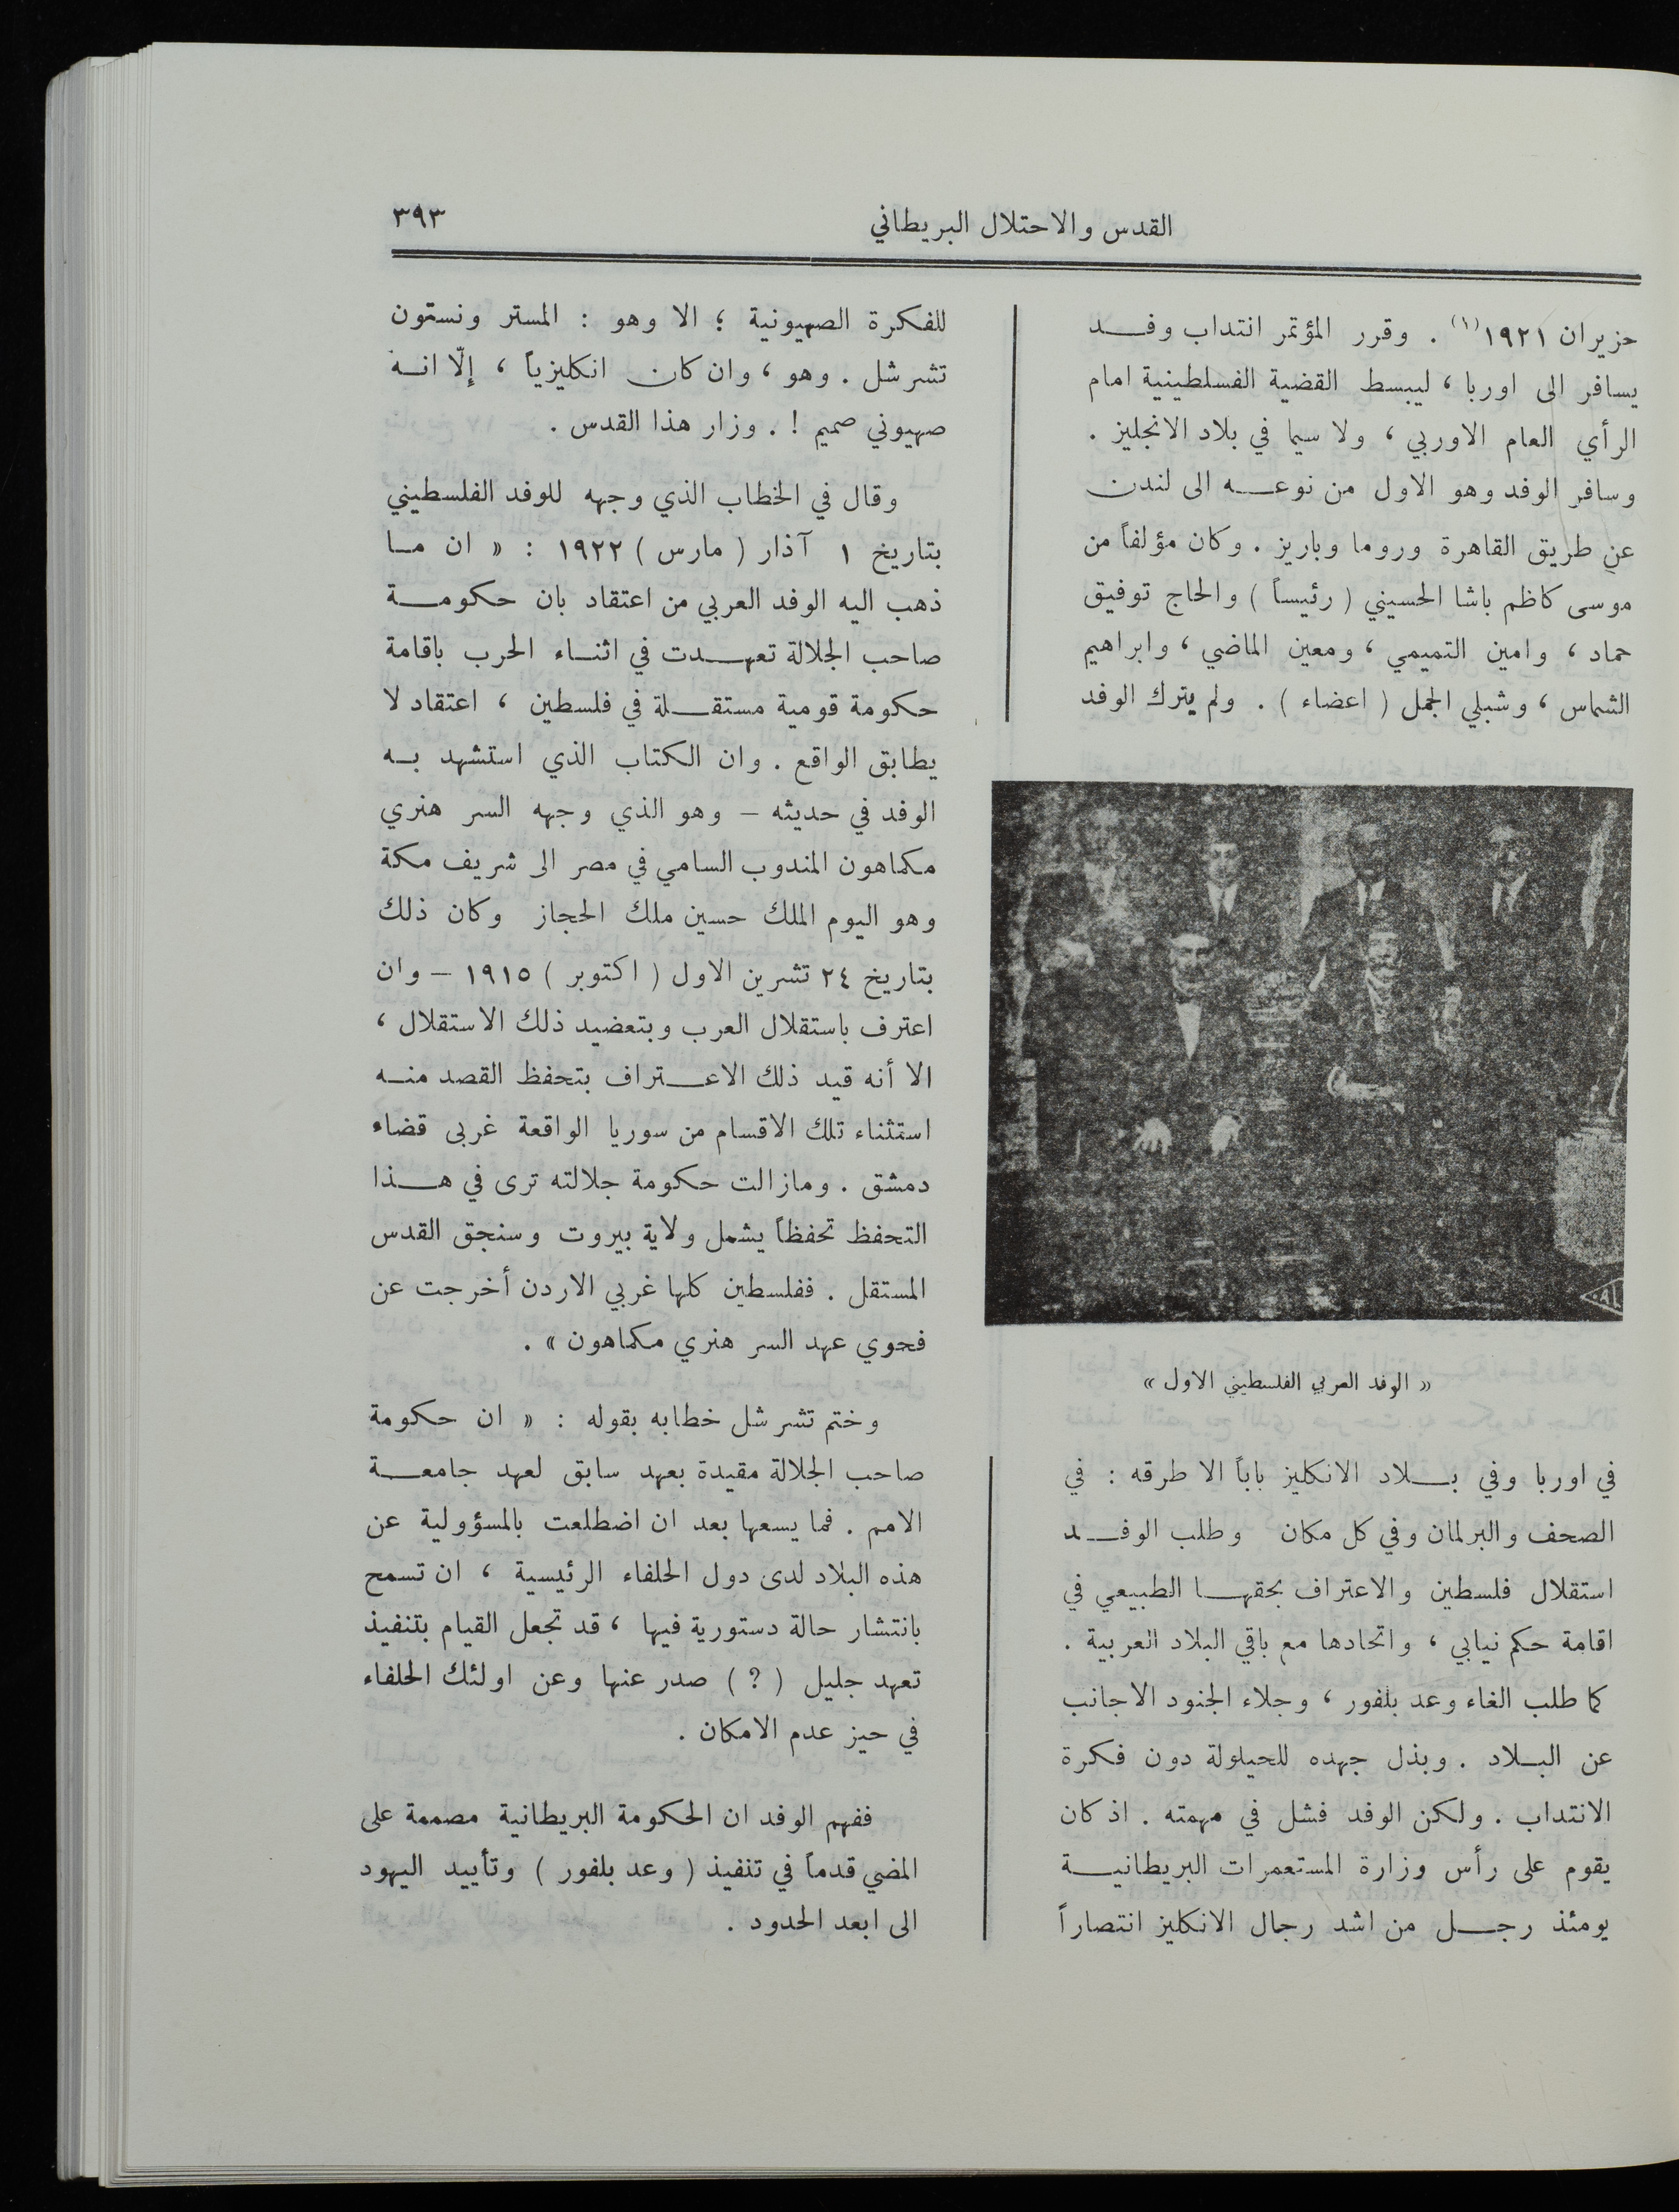 القدس والاحتلال البريطاني
٣٩٣
حزيران ١٩٢١ (١) . وقرر المؤتمر انتداب وفد
يسافر الى اوربا ، ليبسط القضية الفسلطينية امام
الرأي العام الاوربي ، ولا سيما في بلاد الانجليز .
وسافر الوفد وهو الاول من نوعه الى لندن
عن طريق القاهرة وروما وباريز . وكان مؤلفاً من
موسى كاظم باشا الحسيني ( رئيساً ) والحاج توفيق
حماد ، وامين التميمي ، ومعين الماضي ، وابراهيم
الشماس ، وشبلي الجمل ( اعضاء ) . ولم يترك الوفد
« الوفد العربي الفلسطيني الاول »
في اوربا وفي بلاد الانكليز باباً الا طرقه : في
الصحف والبرلمان وفي كل مكان وطلب الوفد
استقلال فلسطين والاعتراف بحقها الطبيعي في
اقامة حكم نيابي ، واتحادها مع باقي البلاد العربية .
كما طلب الغاء وعد بلفور ، وجلاء الجنود الاجانب
عن البلاد . وبذل جهده للحيلولة دون فكرة
الانتداب . ولكن الوفد فشل في مهمته . اذ كان
يقوم على رأس وزارة المستعمرات البريطانية
يومئذ رجل من اشد رجال الانكليز انتصاراً
للفكرة الصهيونية ؛ الا وهو : المستر ونستون
تشرشل . وهو ، وان كان انكليزياً ، إلّا انه
صهيوني صميم ! . وزار هذا القدس .
وقال في الخطاب الذي وجهه للوفد الفلسطيني
بتاريخ ١ آذار ( مارس ) ١٩٢٢ : « ان ما
ذهب اليه الوفد العربي من اعتقاد بان حكومة
صاحب الجلالة تعهدت في اثناء الحرب باقامة
حكومة قومية مستقلة في فلسطين ، اعتقاد لا
يطابق الواقع . وان الكتاب الذي استشهد به
الوفد في حديثه – وهو الذي وجهه السر هنري
مكماهون المندوب السامي في مصر الى شريف مكة
وهو اليوم الملك حسين ملك الحجاز وكان ذلك
بتاريخ ٢٤ تشرين الاول ( اكتوبر ) ١٩١٥ – وان
اعترف باستقلال العرب وبتعضيد ذلك الاستقلال ،
الا أنه قيد ذلك الاعتراف بتحفظ القصد منه
استثناء تلك الاقسام من سوريا الواقعة غربى قضاء
دمشق . ومازالت حكومة جلالته ترى في هذا
التحفظ تحفظاً يشمل ولاية بيروت وسنجق القدس
المستقل . ففلسطين كلها غربي الاردن أخرجت عن
فحوي عهد السر هنري مكماهون » .
وختم تشرشل خطابه بقوله : « ان حكومة
صاحب الجلالة مقيدة بعهد سابق لعهد جامعة
الامم . فما يسعها بعد ان اضطلعت بالمسؤولية عن
هذه البلاد لدى دول الحلفاء الرئيسية ، ان تسمح
بانتشار حالة دستورية فيها ، قد تجعل القيام بتنفيذ
تعهد جليل ( ؟ ) صدر عنها وعن اولئك الحلفاء
في حيز عدم الامكان .
ففهم الوفد ان الحكومة البريطانية مصممة على
المضي قدماً في تنفيذ ( وعد بلفور ) وتأييد اليهود
الى ابعد الحدود .